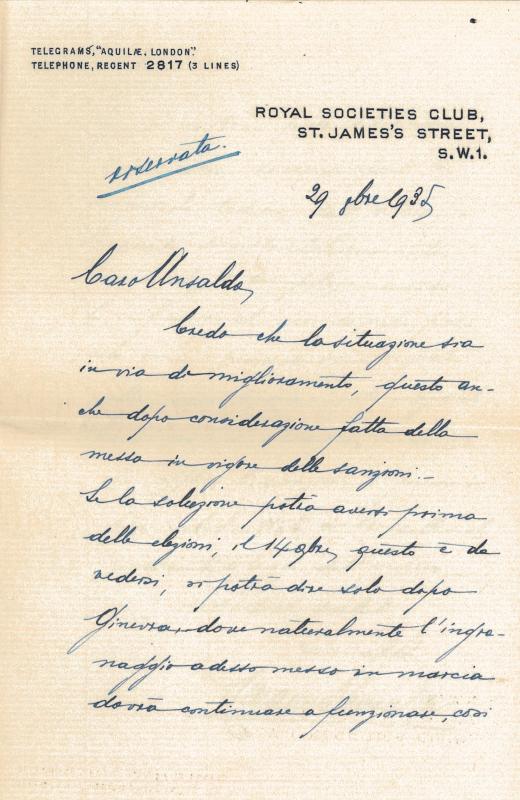 TELEGRAMS, "AQUILÆ, LONDON".
TELEPHONE, REGENT 2817 (3 LINES)
ROYAL SOCIETIES CLUB,
ST. JAMES'S STREET,
S.W.1.
riservata.
29 8bre 1935
Caro Ansaldo,
Credo che la situazione sia
in via di miglioramento, questo an-
che dopo considerazione fatta della
messa in vigore delle sanzioni.-
Se la soluzione potrà aversi prima
delle elezioni, il 14 9bre, questo è da
vedersi, si potrà dire solo dopo
Ginevra, dove naturalmente l'ingra-
naggio adesso messo in marcia
dovrà continuare a funzionare, così